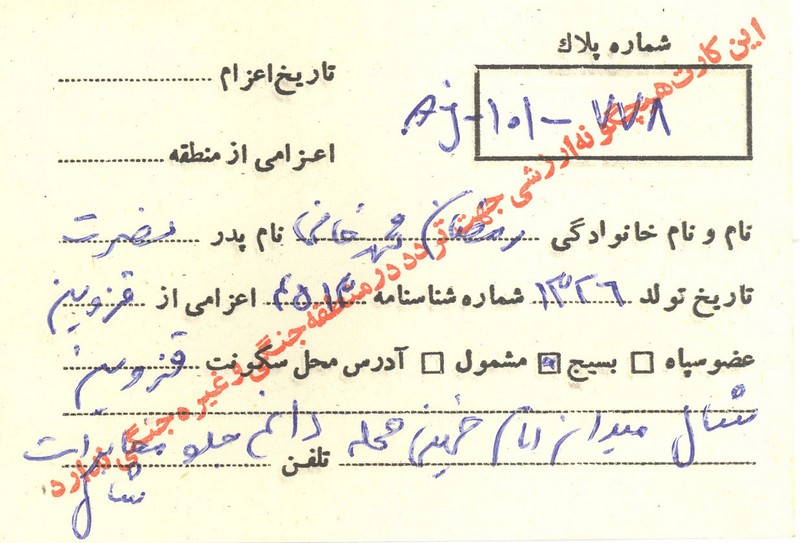 شماره پلاک
AJ-101-۷۷۸
تاریخ اعزام
اعزامی از منطقه
نام و نام خانوادگی رمضان محمدخانی نام پدر نصرت
تاریخ تولد ۱۳۲۶ شماره شناسنامه اعزامی از قزوین
عضو سپاه بسیج مشمول آدرس محل سکونت قزوین
شال میدان امام خمینی محله جلو مخابرات
تلفن
شال
این کارت هیچگونه ارزشی جهت تردد در منطقه جنگی و غیره جنگی ندارد.